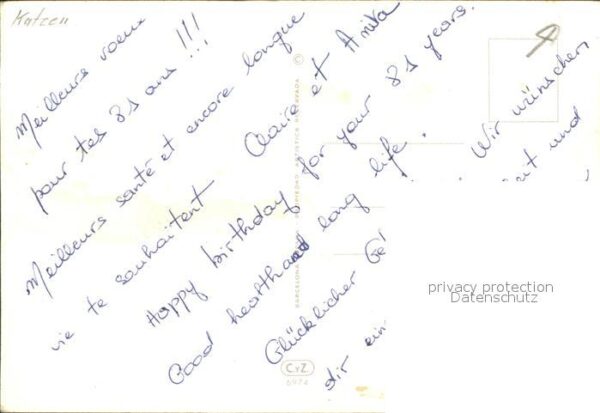 Katzen
Meilleurs voeux
pour tes 81 ans !!!
Meilleurs santé et encore longue
vie te souhaitent Claire et Anita
Happy birthday for your 81 years.
Good hearth and long life.
Glücklicher Ge
Wir wünschen
dir ein
und
BARCELONA
PROPIEDAD ARTISTICA RESERVADA
C.yZ.
6974
4
privacy protection
Datenschutz